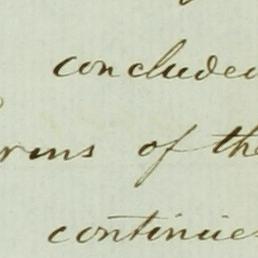 concluded
rms of the
continues